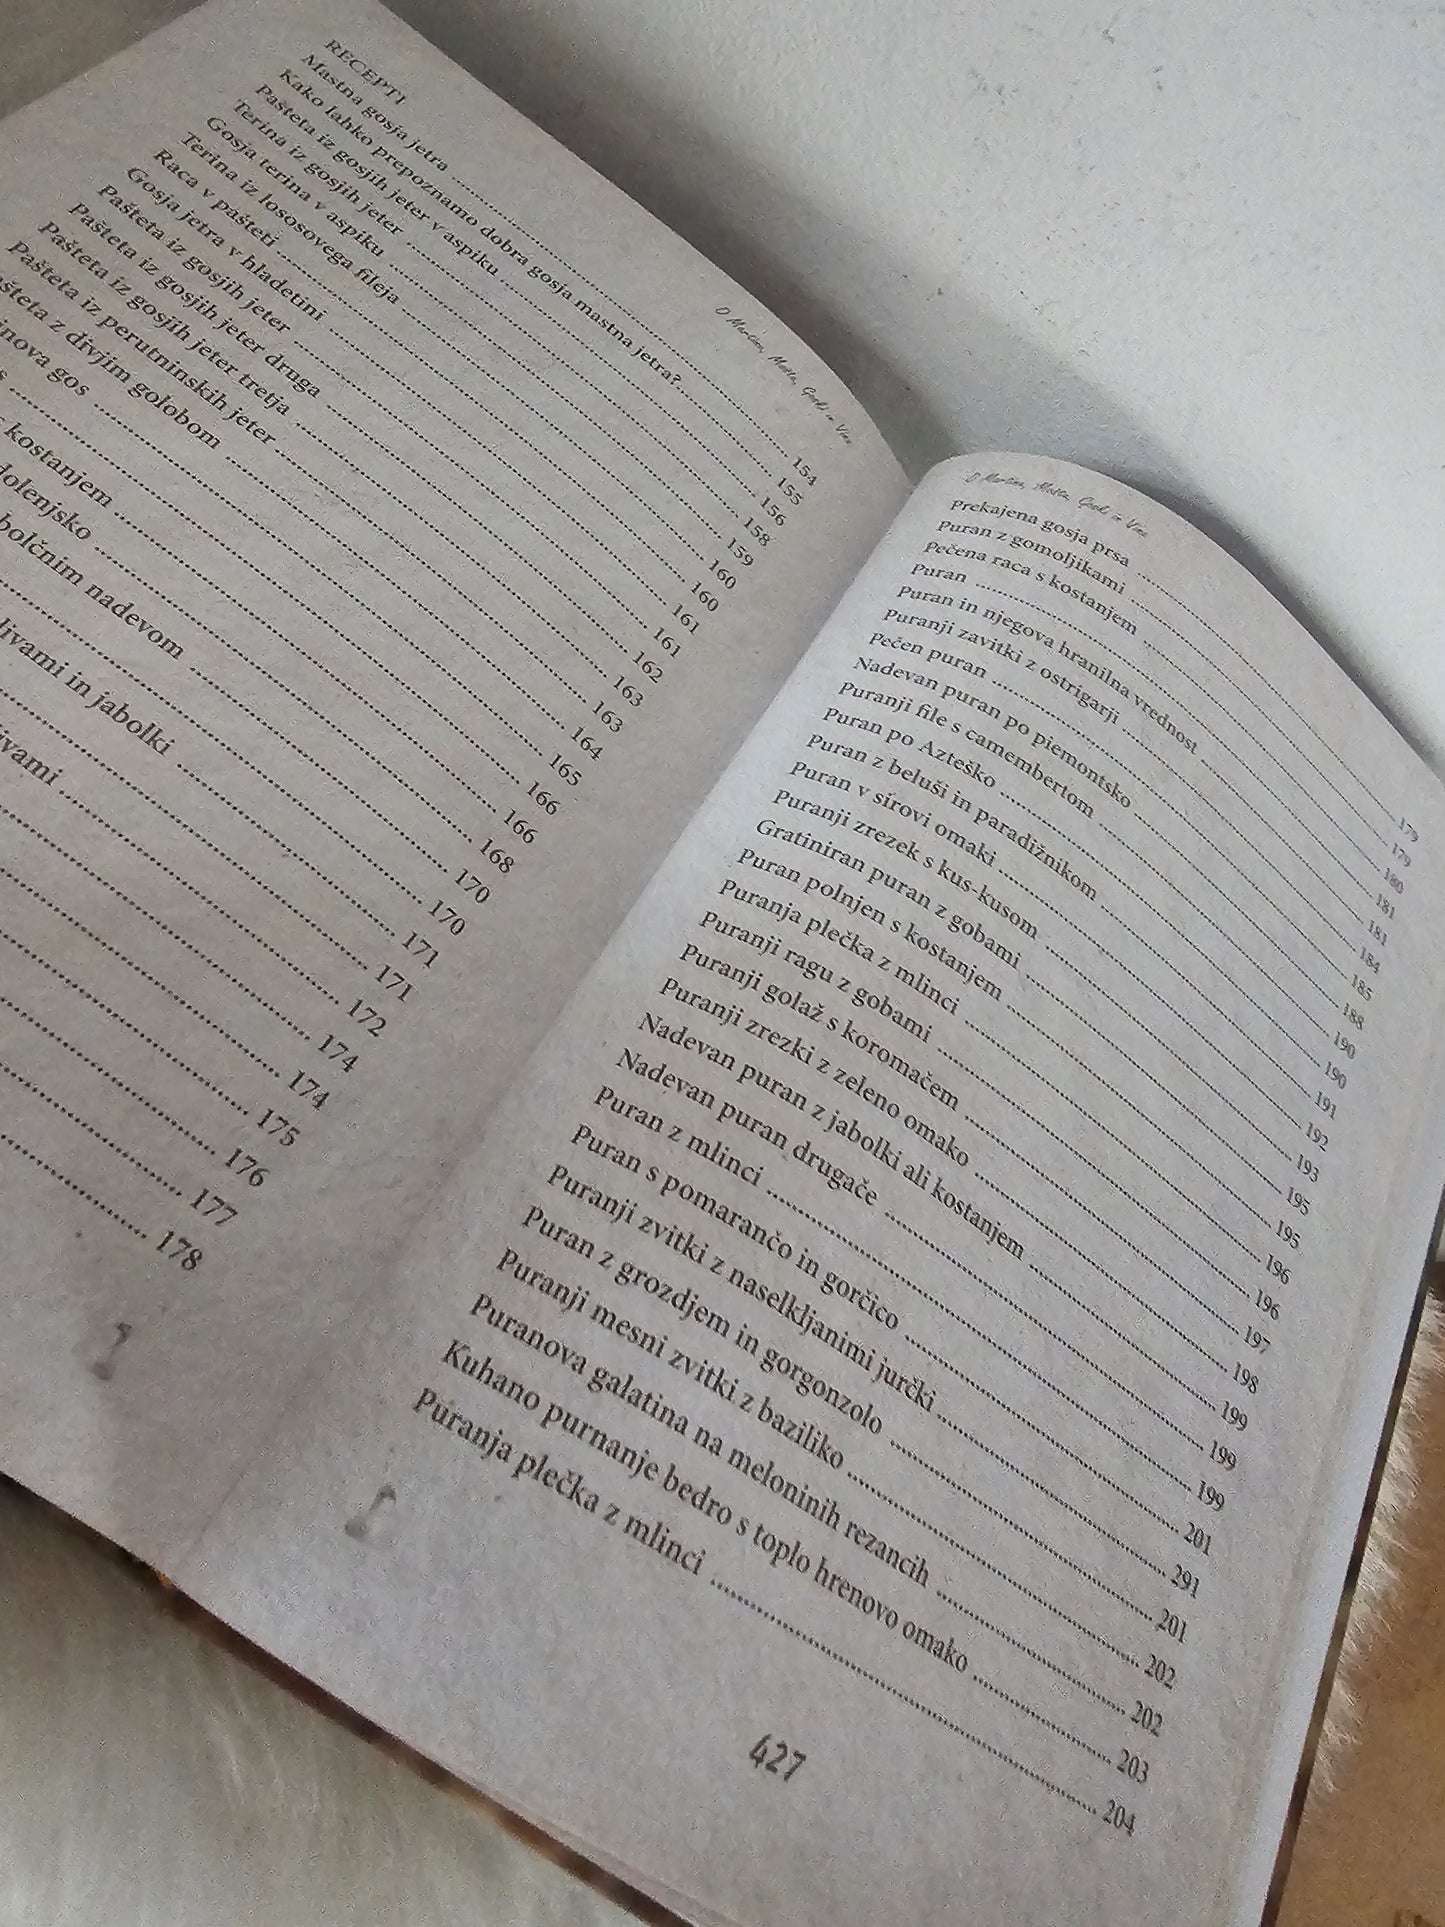 RECEPTI
Mastna gosja jetra ........ 154
Kako lahko prepoznamo dobra gosja mastna jetra? ........ 155
Pašteta iz gosjih jeter v aspiku ........ 156
Terina iz gosjih jeter ........ 158
Gosja terina v aspiku ........ 159
Terina iz lososovega fileja ........ 160
Raca v pašteti ........ 160
Gosja jetra v hladetini ........ 161
Pašteta iz gosjih jeter ........ 161
Pašteta iz gosjih jeter druga ........ 162
Pašteta iz gosjih jeter tretja ........ 163
Pašteta iz perutninskih jeter ........ 163
z divjim golobom ........ 164
gos ........ 165
........ 166
kostanjem ........ 166
dolenjsko ........ 168
nadevom ........ 170
........ 170
in jabolki ........ 171
........ 171
........ 172
........ 174
........ 174
........ 175
........ 176
........ 177
........ 178
Prekajena gosja prsa ........ 179
Puran z gomoljikami ........ 179
Pečena raca s kostanjem ........ 180
Puran ........ 181
Puran in njegova hranilna vrednost ........ 181
Puranji zavitki z ostrigarji ........ 184
Pečen puran ........ 185
Nadevan puran po piemontsko ........ 188
Puranji file s camembertom ........ 190
Puran po Azteško ........ 190
Puran z beluši in paradižnikom ........ 191
Puran v sirovi omaki ........ 192
Puranji zrezek s kus-kusom ........ 193
Gratiniran puran z gobami ........ 195
Puran polnjen s kostanjem ........ 195
Puranja plečka z mlinci ........ 196
Puranji ragu z gobami ........ 196
Puranji golaž s koromačem ........ 197
Puranji zrezki z zeleno omako ........ 198
Nadevan puran z jabolki ali kostanjem ........ 199
Nadevan puran drugače ........ 199
Puran z mlinci ........ 199
Puran s pomarančo in gorčico ........ 201
Puranji zvitki z naselkljanimi jurčki ........ 291
Puran z grozdjem in gorgonzolo ........ 201
Puranji mesni zvitki z baziliko ........ 202
Puranova galatina na meloninih rezancih ........ 202
Kuhano purnanje bedro s toplo hrenovo omako ........ 203
Puranja plečka z mlinci ........ 204
427